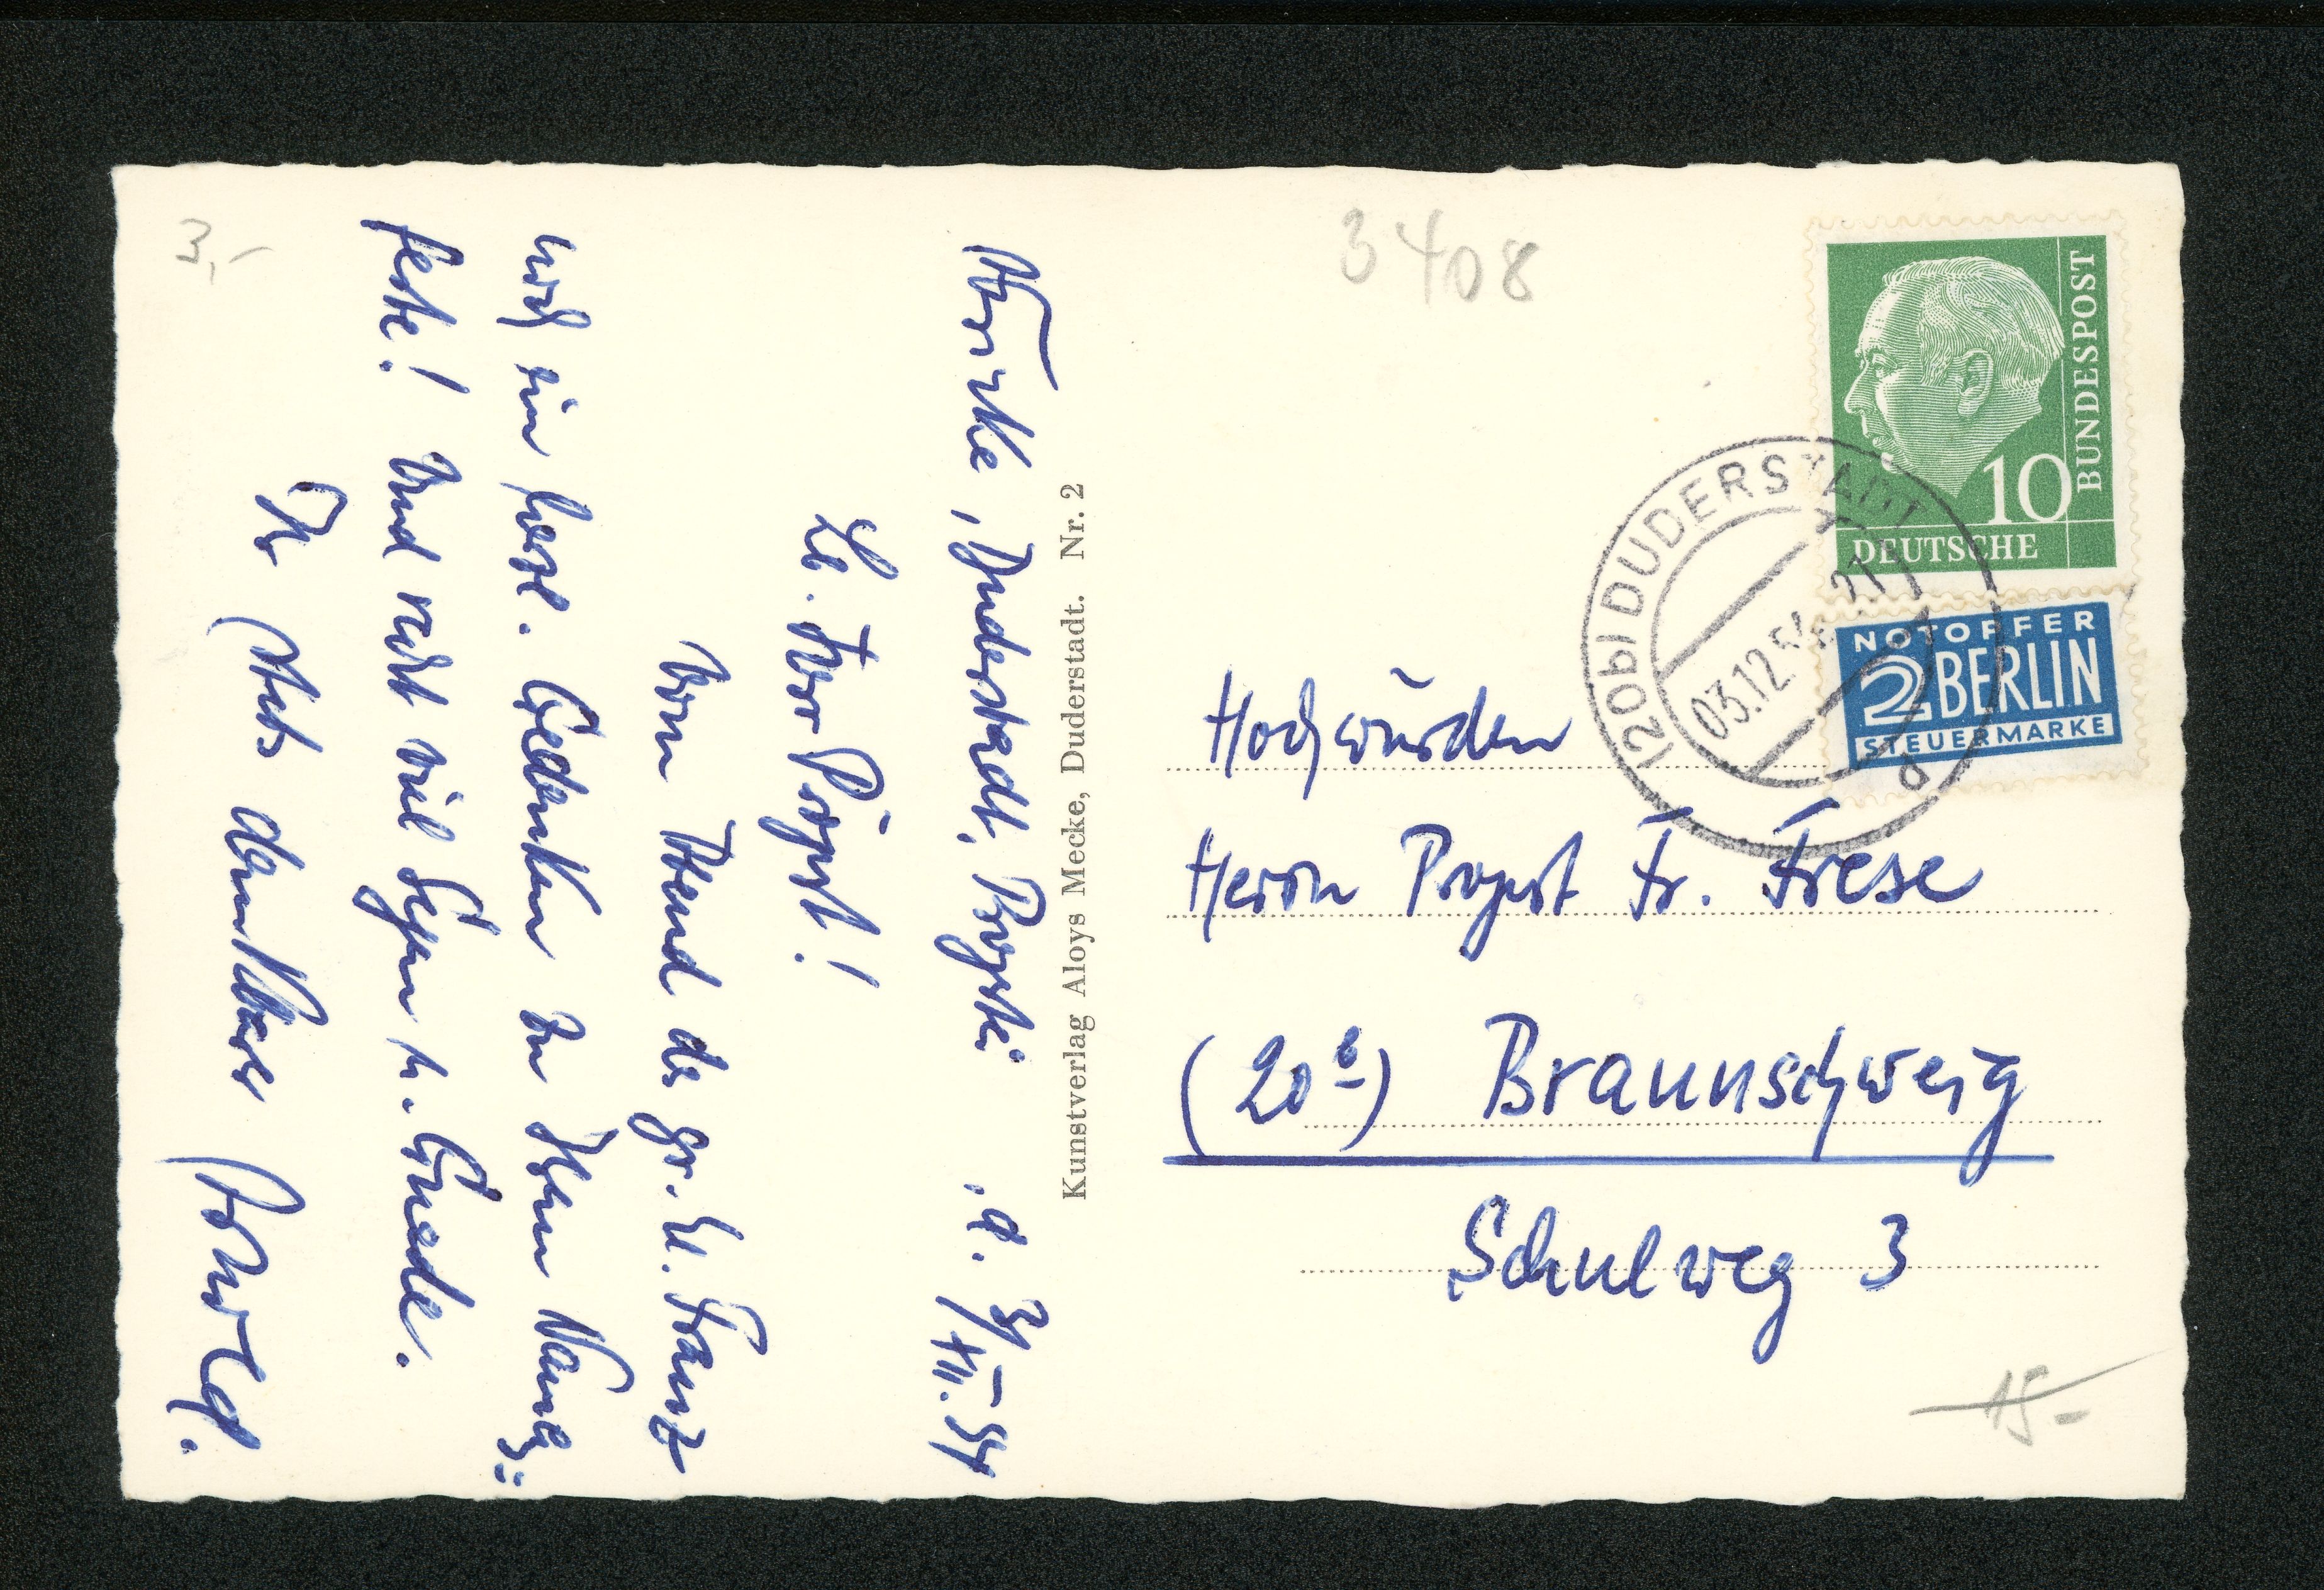 3,-
, Duderstadt, Propstei, d. 3/XII. 54
Lb. Herr Propst!
Vom Abend des gr. hl. Franz
noch ein herzl. Gedenken zu Ihrem Namens=
feste! Und recht viel Segen u. Gnade.
Ihr stets dankbarer
Kunstverlag Aloys Mecke, Duderstadt. Nr. 2
3408
DEUTSCHE BUNDESPOST
10
NOTOPFER
2 BERLIN
STEUERMARKE
(20b) DUDERSTADT
03.12.54
Hochwürden
Herrn Propst Fr. Frese
(20b) Braunschweig
Schulweg 3
15-